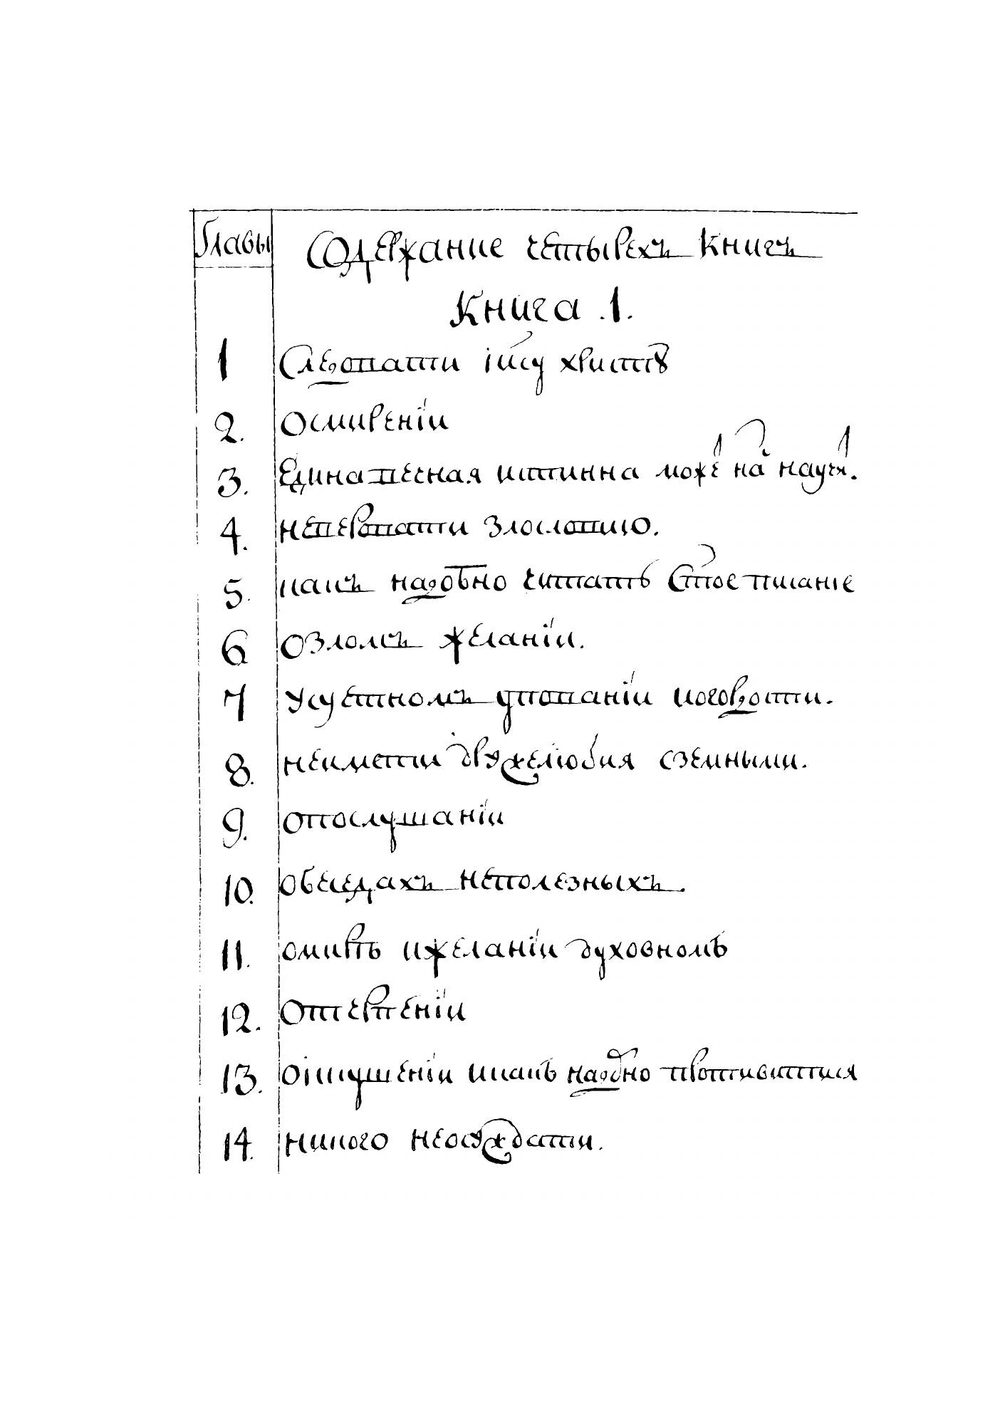 Главы Содержание четырехъ книгъ
Книга .1.
1 Следовати Іису христѣ
2. Осмиреніи
3. Единанебесная истинна може на научи.
4. неперовати злословию.
5. какъ надобно читать Стое писаніе
6 Озломъ желаніи.
7 Усуетномъ уповании игордости.
8. неимети дружелюбия сземными.
9. опослушаніи
10. Обеседахъ неполезныхъ.
11. омирѣ ижеланіи духовномъ
12. Отерпеніи
13. Оіскушеніи икакъ надобно противитися
14. никого неосуждати.